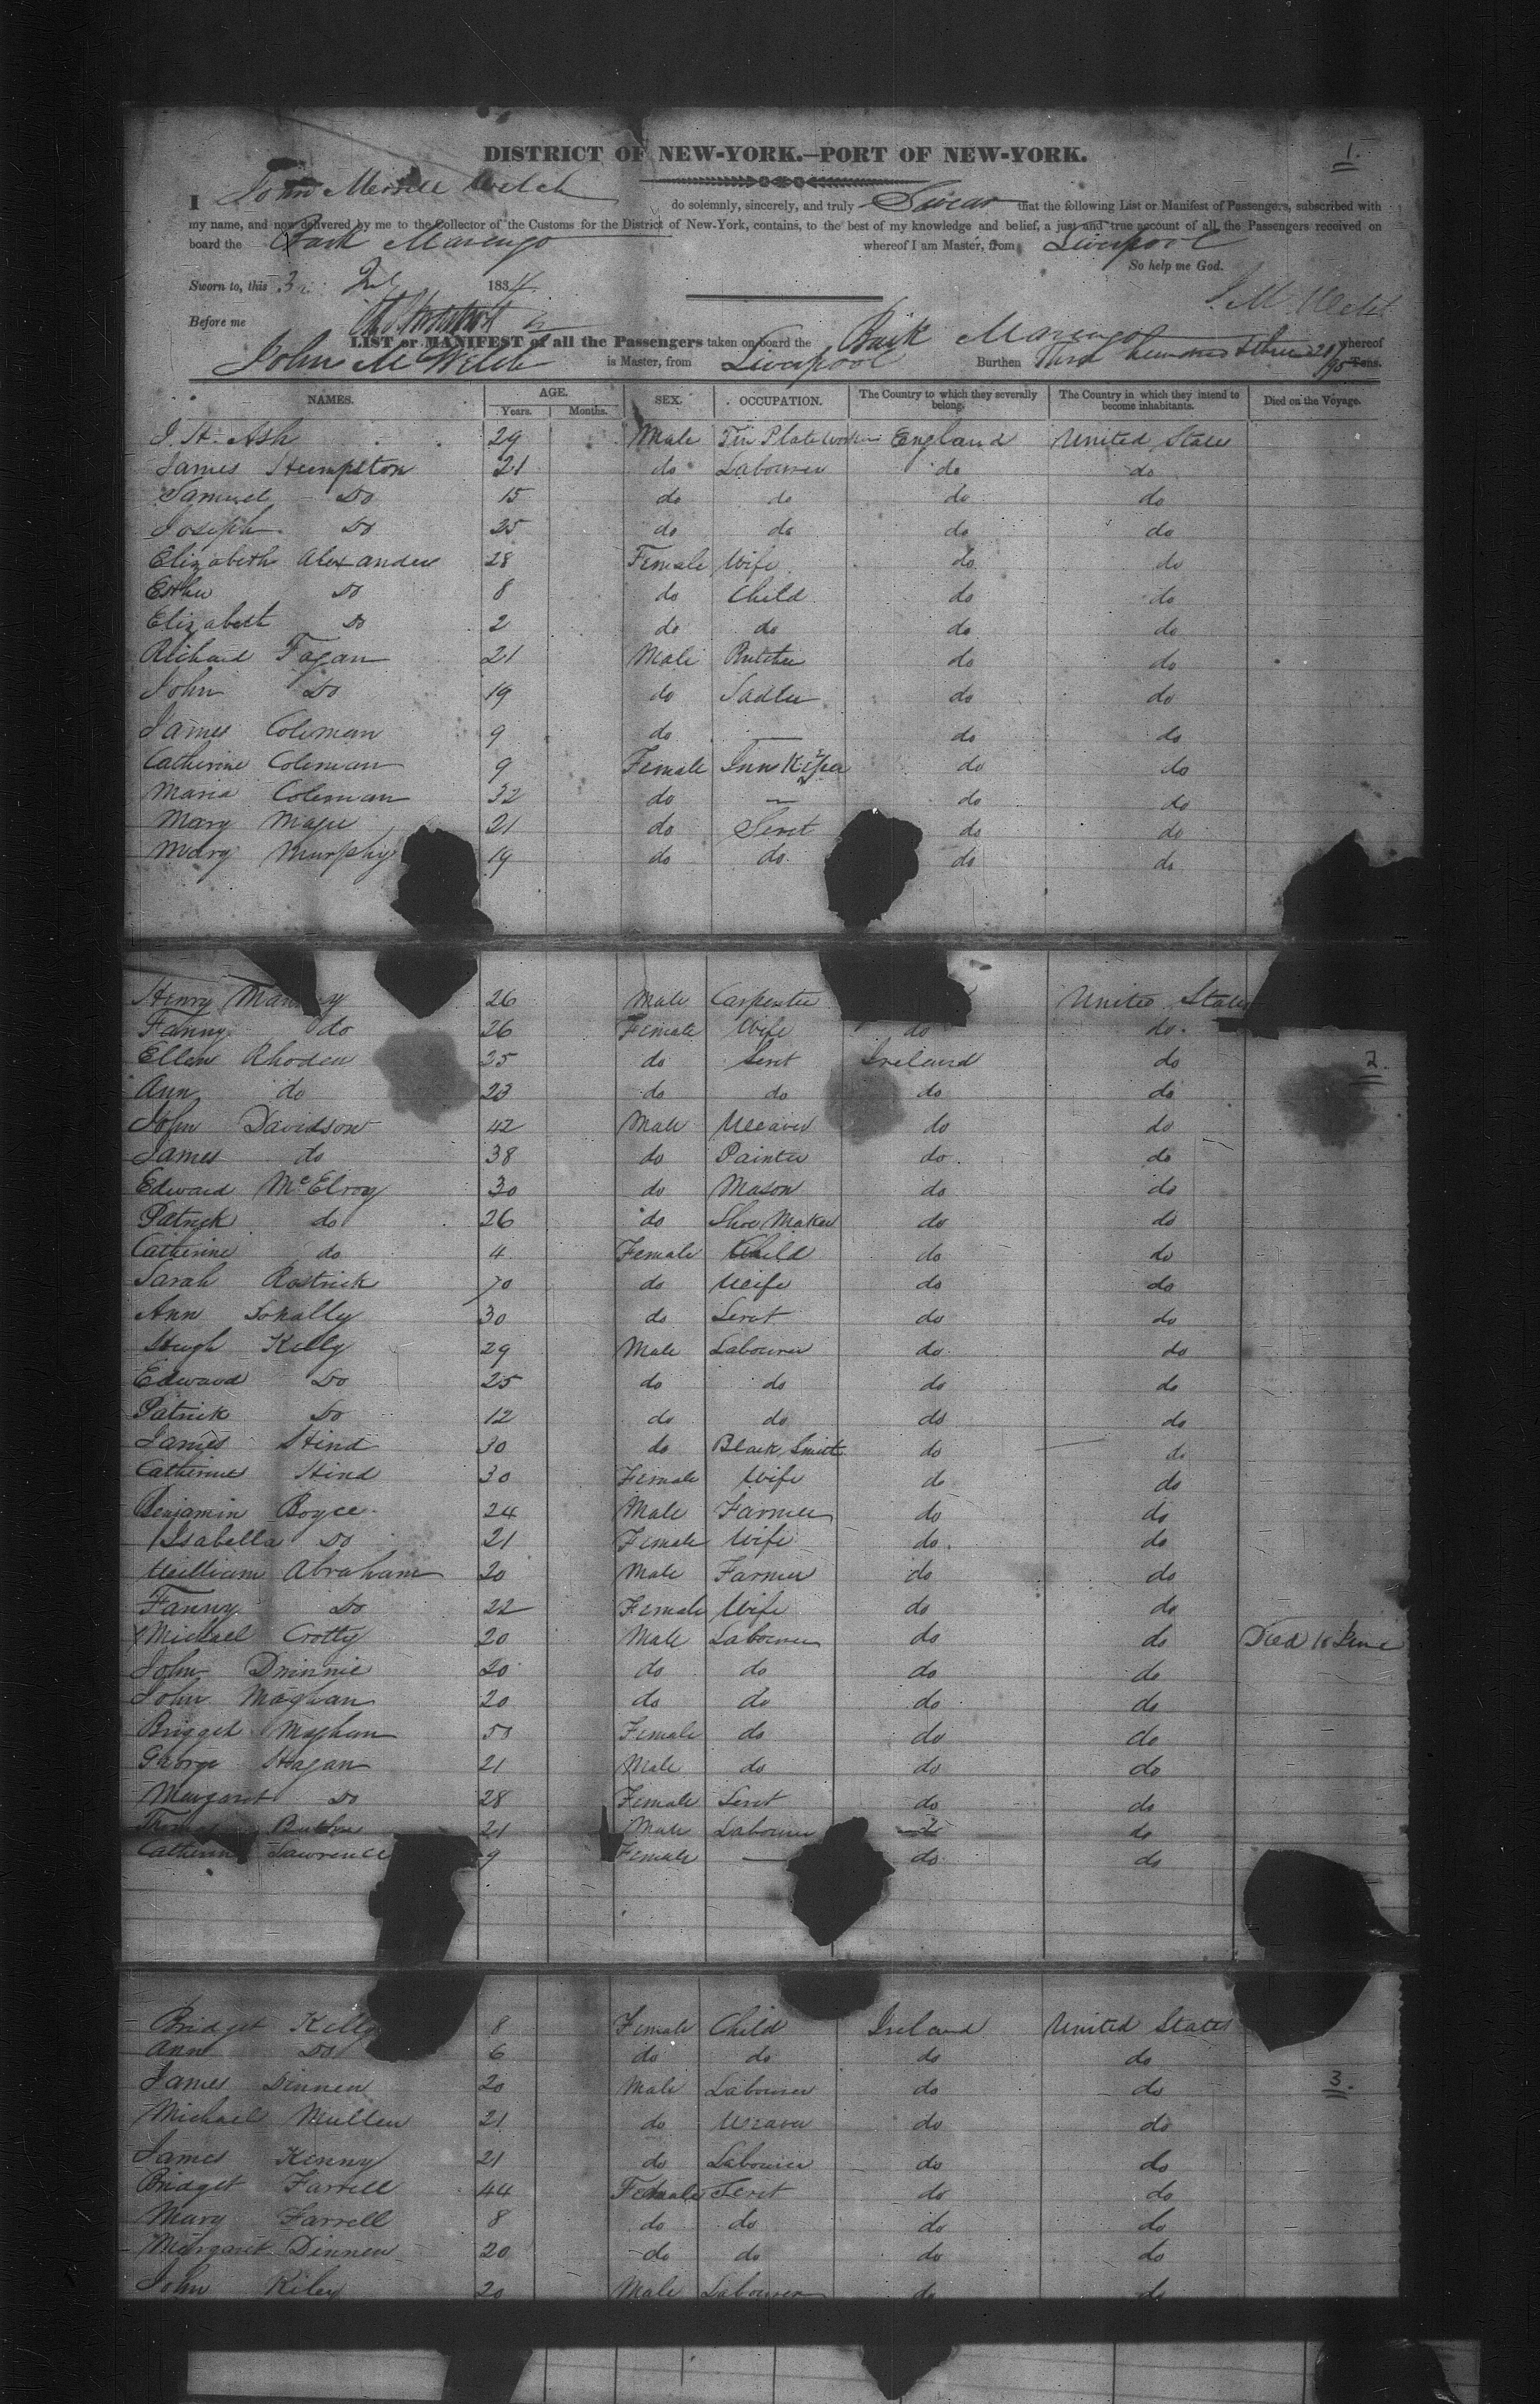 DISTRICT OF NEW-YORK.—PORT OF NEW-YORK.
1.
I John Merrill Welch do solemnly, sincerely, and truly Swear that the following List or Manifest of Passengers, subscribed with
my name, and now delivered by me to the Collector of the Customs for the District of New-York, contains, to the best of my knowledge and belief, a just and true account of all the Passengers received on
board the Bark Marengo whereof I am Master, from Liverpool
So help me God.
Sworn to, this 3 July 1834
J. M. Welch
Before me
LIST or MANIFEST of all the Passengers taken on board the Bark Marengo whereof
John M Welch is Master, from Liverpool Burthen Three hundred & three 21/95 Tons.
NAMES. AGE. SEX. OCCUPATION. The Country to which they severally belong. The Country in which they intend to become inhabitants. Died on the Voyage.
Years. Months.
J. H. Ash 29 Male Tin Plate Worker England United States
James Humpston 21 do Labourer do do
Samuel Do 15 do do do do
Joseph Do 25 do do do do
Elizabeth Alexander 28 Female Wife do do
Esther Do 8 do Child do do
Elizabeth Do 2 do do do do
Richard Fagan 21 Male Butcher do do
John Do 19 do Sadler do do
James Coleman 9 do — do do
Catherine Coleman 9 Female Inn Keeper do do
Maria Coleman 32 do — do do
Mary Magee 21 do Servt do do
Mary Murphy 19 do do do do
Henry 26 Male Carpenter United States
Fanny do 26 Female Wife do do
Ellen Rhoden 25 do Servt Ireland do
2.
Ann do 23 do do do do
John Davidson 42 Male Weaver do do
James do 38 do Painter do do
Edward McElroy 30 do Mason do do
Patrick do 26 do Shoe Maker do do
Catherine do 4 Female Child do do
Sarah Rostrick 70 do Wife do do
Ann 30 do Servt do do
Hugh Kelly 29 Male Labourer do do
Edward Do 25 do do do do
Patrick Do 12 do do do do
James Hind 30 do Black Smith do do
Catherine Hind 30 Female Wife do do
Benjamin Boyce 24 Male Farmer do do
Isabella Do 21 Female Wife do do
William Abraham 20 Male Farmer do do
Fanny Do 22 Female Wife do do
Michael Crotty 20 Male Labourer do do Died 16 June
John Drinnie 20 do do do do
John Maghan 20 do do do do
Bridget Maghan 50 Female do do do
George Hagan 21 Male do do do
Margaret Do 28 Female Servt do do
Thomas 21 Male Labourer do do
Catherine Lawrence 9 Female — do do
Bridget Kelly 8 Female Child Ireland United States
Ann Do 6 do do do do
James Dinnen 20 Male Labourer do do
3.
Michael Mullen 21 do Weaver do do
James Kenny 21 do Labourer do do
Bridget Farrell 44 Female Servt do do
Mary Farrell 8 do do do do
Margaret Dinnen 20 do do do do
John Riley 20 Male Labourer do do